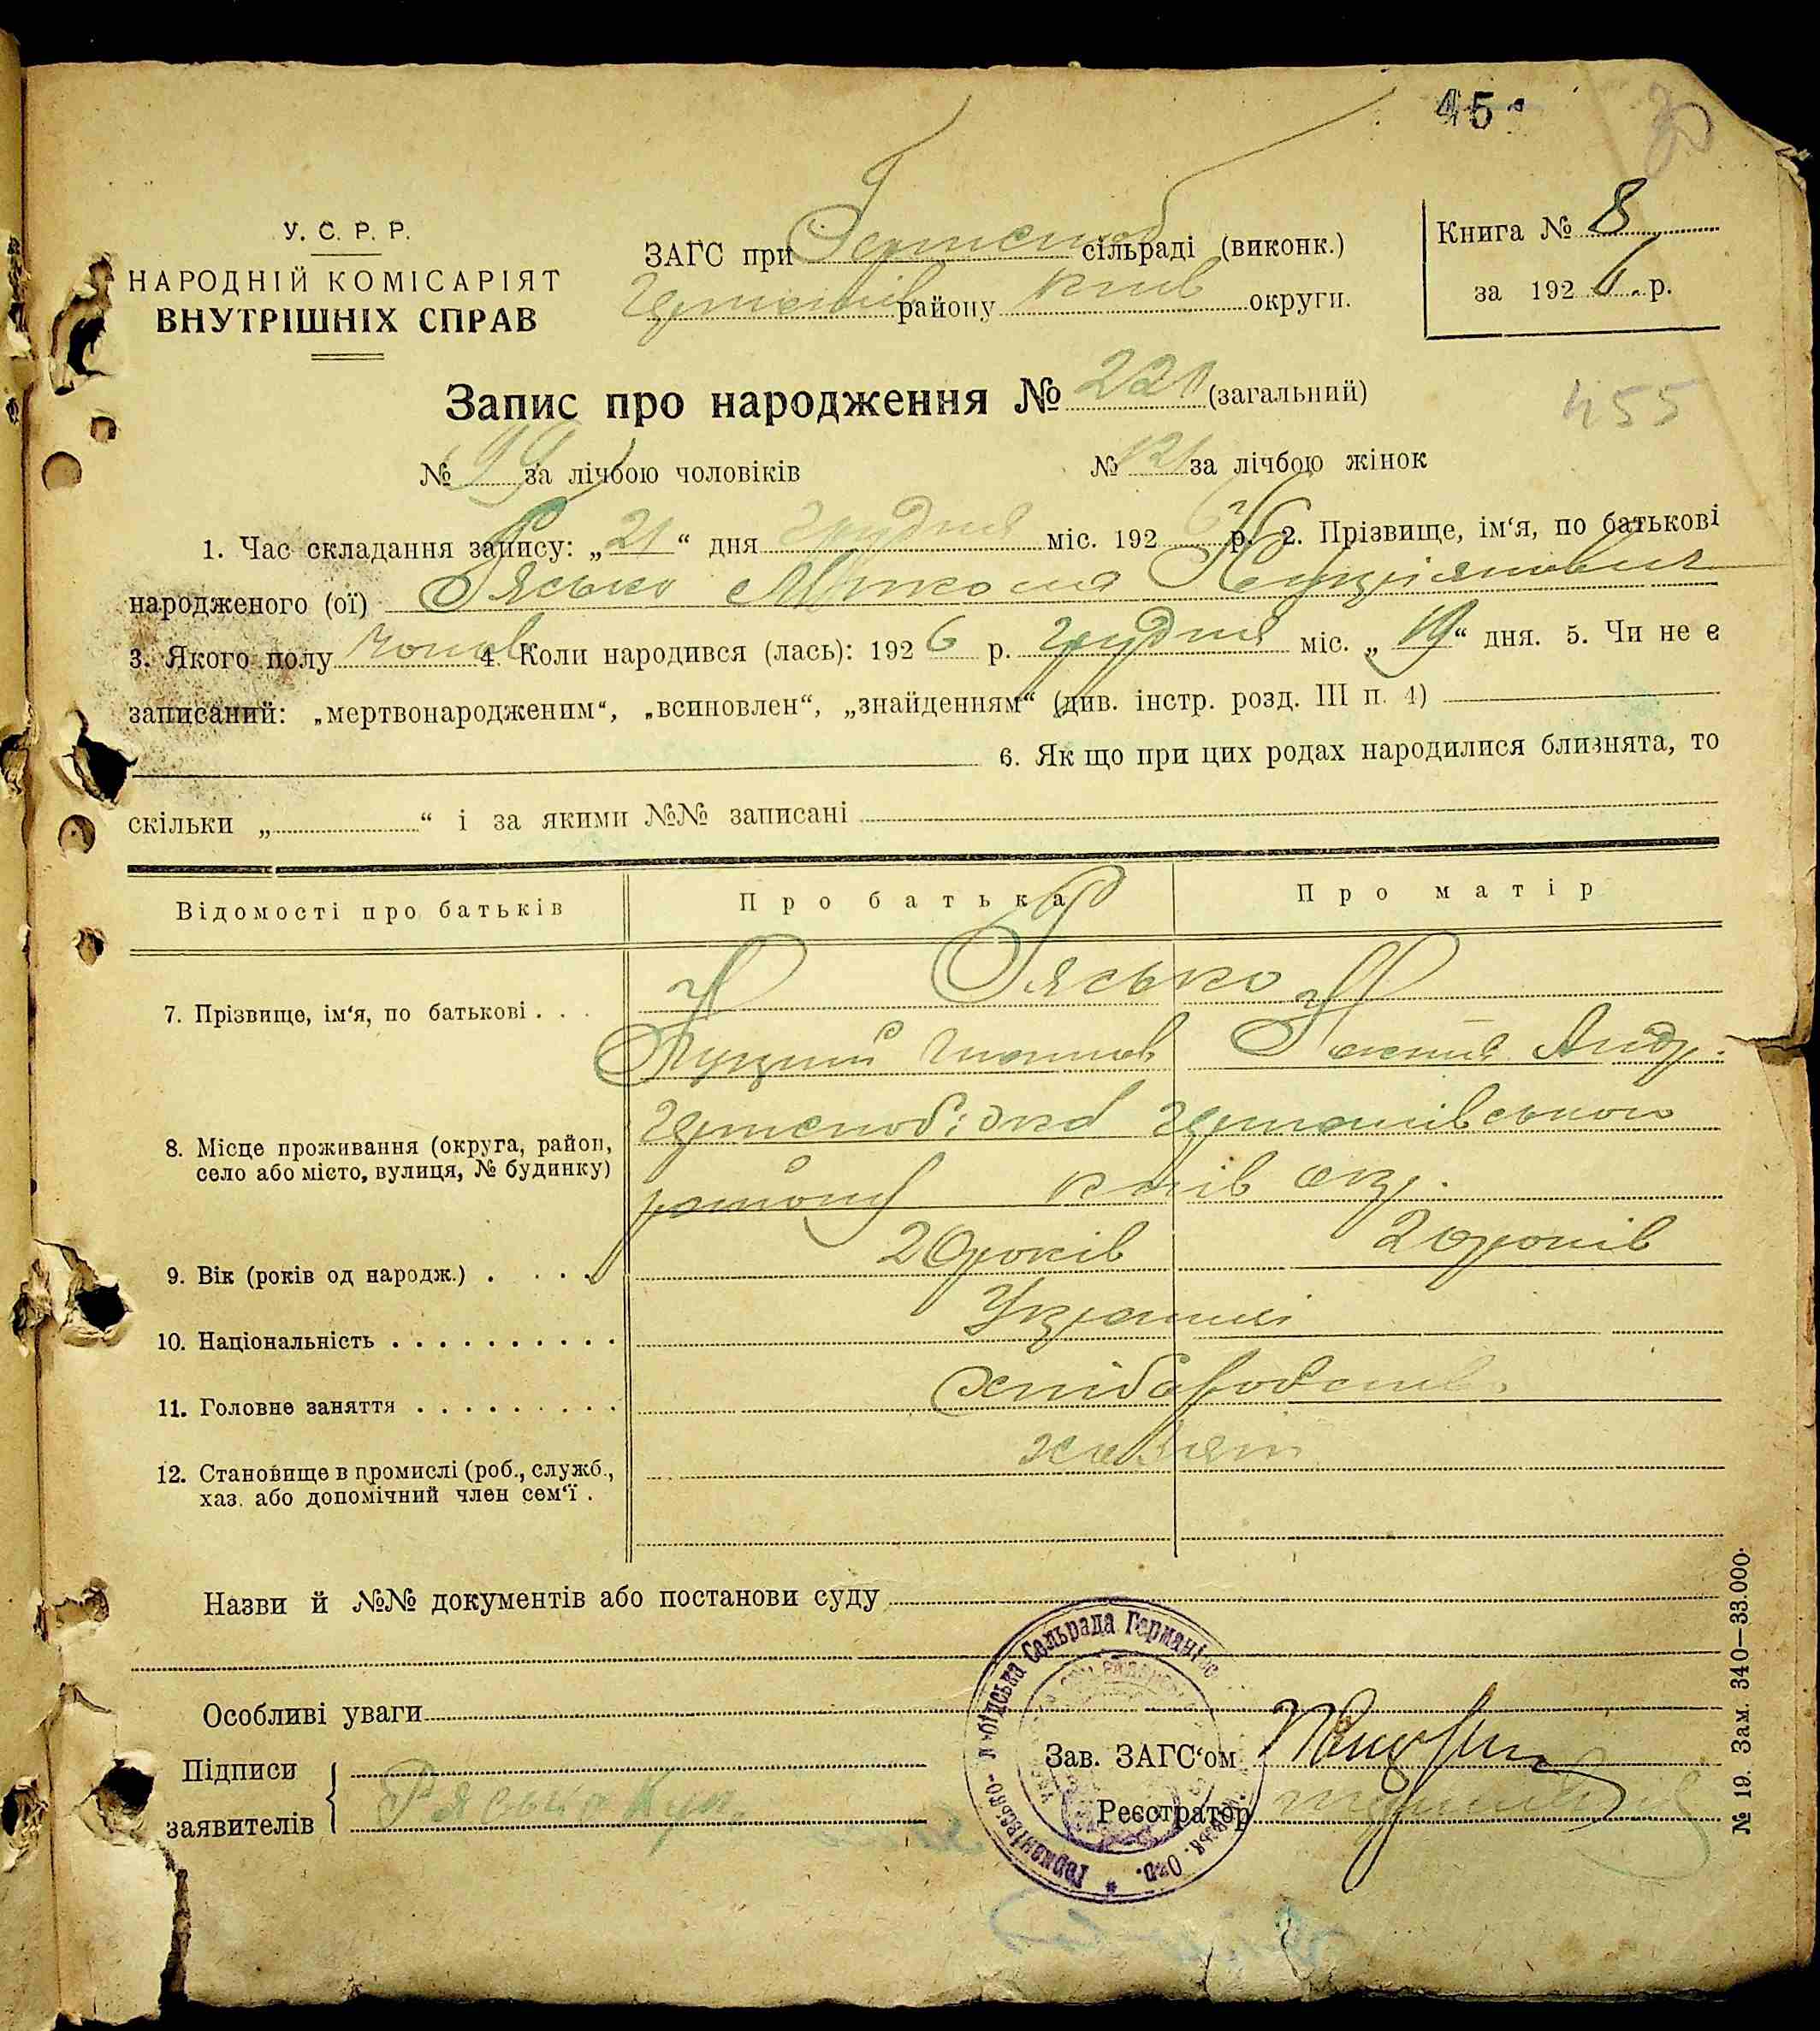 45
30
У. С. Р. Р.
НАРОДНІЙ КОМІСАРІЯТ
ВНУТРІШНІХ СПРАВ
ЗАГС при сільраді (виконк.)
району Київ округи.
Книга № 8
за 192 6 р.
Запис про народження № 221 (загальний)
455
№ 99 за лічбою чоловіків № 121 за лічбою жінок
1. Час складання запису: „21“ дня грудня міс. 192 6 р. 2. Прізвище, ім‘я, по батькові
народженого (ої) Рясько Микола Купріянович
3. Якого полу чолов 4. Коли народився (лась): 192 6 р. грудня міс. „19“ дня. 5. Чи не є
записаний: „мертвонародженим“, „всиновлен“, „знайденням“ (див. інстр. розд. III п. 4)
6. Як що при цих родах народилися близнята, то
скільки „ “ і за якими №№ записані
Відомості про батьків Про батька Про матір
Рясько
7. Прізвище, ім‘я, по батькові . . .
Андр.
8. Місце проживання (округа, район,
село або місто, вулиця, № будинку)
району Київ окр.
9. Вік (років од народж.) . . . . 20 років 20 років
10. Національність . . . . . . . . . . Українці
11. Головне заняття . . . . . . . . . хлібороб
12. Становище в промислі (роб., служб., хазяїн
хаз. або допомічний член сем‘ї .
Назви й №№ документів або постанови суду
Особливі уваги
Підписи
заявителів Рясько Куп.
Зав. ЗАГС‘ом
Реєстратор
№ 19. Зам. 340—33.000.